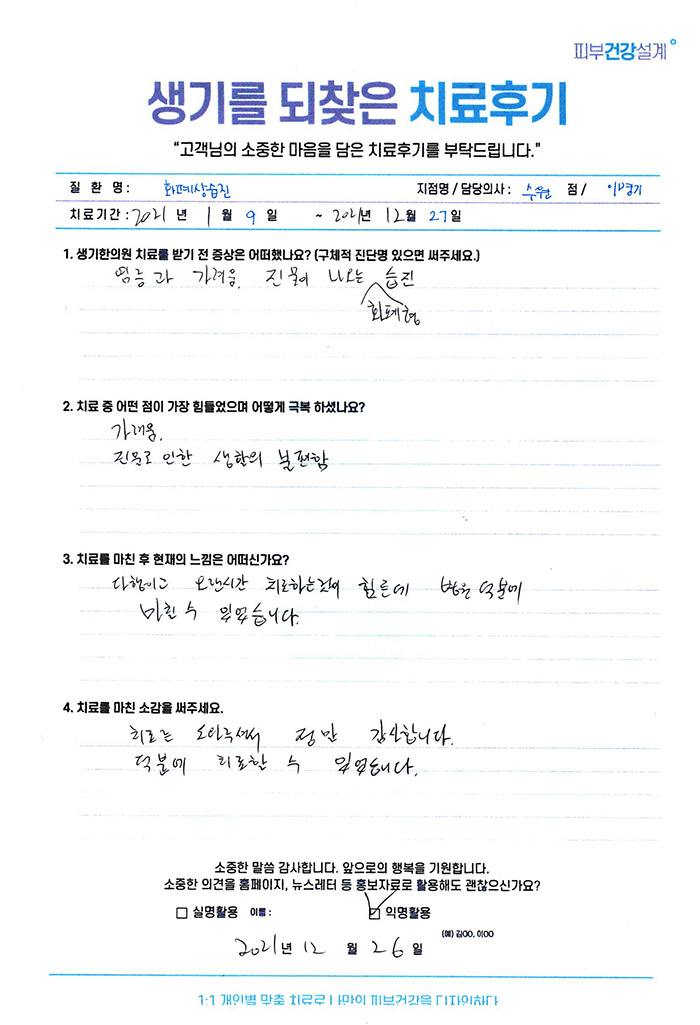 피부건강설계
생기를 되찾은 치료후기
“고객님의 소중한 마음을 담은 치료후기를 부탁드립니다.”
질 환 명 : 화폐상습진 지점명 / 담당의사 : 수원 점 /
치료기간 : 2021 년 1 월 9 일 ~ 2021년 12 월 27 일
1. 생기한의원 치료를 받기 전 증상은 어떠했나요? (구체적 진단명 있으면 써주세요.)
염증과 가려움, 진물이 나오는 습진
화폐형
2. 치료 중 어떤 점이 가장 힘들었으며 어떻게 극복 하셨나요?
가려움.
진물로 인한 생활의 불편함
3. 치료를 마친 후 현재의 느낌은 어떠신가요?
다행이고 오랜시간 치료하는것이 힘든데 덕분에
마칠 수 있었습니다.
4. 치료를 마친 소감을 써주세요.
치료를 도와주셔서 정말 감사합니다.
덕분에 치료할 수 있었습니다.
소중한 말씀 감사합니다. 앞으로의 행복을 기원합니다.
소중한 의견을 홈페이지, 뉴스레터 등 홍보자료로 활용해도 괜찮으신가요?
실명활용 이름 : 익명활용
(예) 김OO, 이OO
2021 년 12 월 26 일
1:1 개인별 맞춤 치료로 나만의 피부건강을 디자인하다